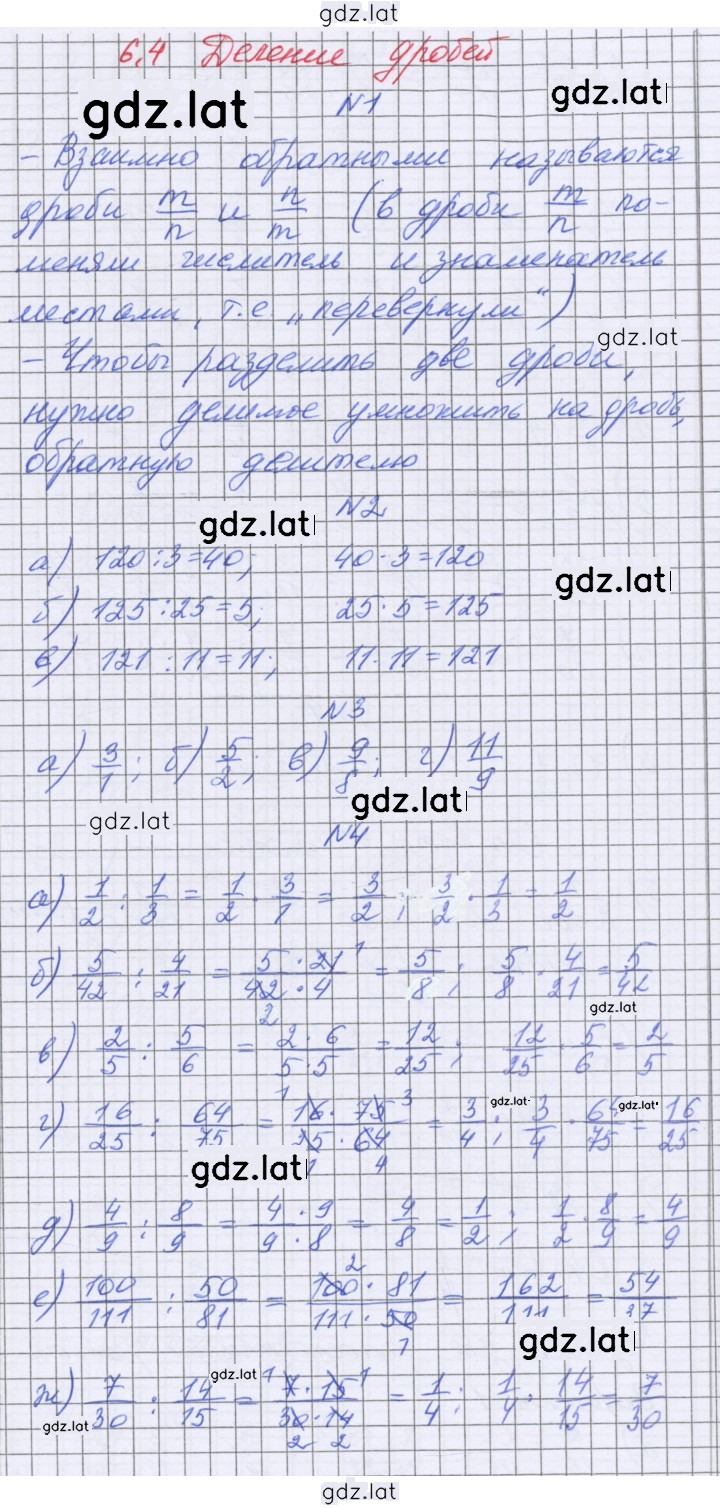 gdz.lat
6.4 Деление дробей
gdz.lat
gdz.lat
N1
- Взаимно обратными называются
дроби m/n и n/m (в дроби m/n по-
меняли числитель и знаменатель
местами, т.е. „перевернули“)
gdz.lat
- Чтобы разделить две дроби,
нужно делимое умножить на дробь,
обратную делителю
gdz.lat
N2
а) 120 : 3 = 40; 40 · 3 = 120
gdz.lat
б) 125 : 25 = 5; 25 · 5 = 125
в) 121 : 11 = 11; 11 · 11 = 121
N3
а) 3/1; б) 5/2; в) 9/8; г) 11/9
gdz.lat
gdz.lat
N4
а) 1/2 : 1/3 = 1/2 · 3/1 = 3/2; 3/2 · 1/3 = 1/2
б) 5/42 : 4/21 = 5 · 21 1/42 · 4 2 = 5/8; 5/8 · 4/21 = 5/42
gdz.lat
в) 2/5 : 5/6 = 2 · 6/5 · 5 = 12/25; 12/25 · 5/6 = 2/5
г) 16/25 : 64/75 = 1 16 · 75 3/25 · 64 1 4 = 3/4; 3/4 · 64/75 = 16/25
gdz.lat
gdz.lat
gdz.lat
д) 4/9 : 8/9 = 4 · 9/9 · 8 = 4/8 = 1/2; 1/2 · 8/9 = 4/9
е) 100/111 : 50/81 = 2 100 · 81/111 · 50 1 = 162/111 = 54/37
gdz.lat
gdz.lat
ж) 7/30 : 14/15 = 1 7 · 15 1/30 · 14 2 2 = 1/4; 1/4 · 14/15 = 7/30
gdz.lat
gdz.lat